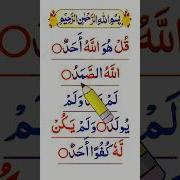 بِسْمِ اللهِ الرَّحْمٰنِ الرَّحِيْمِ
قُلْ هُوَ اللّٰهُ أَحَدٌ
اللّٰهُ الصَّمَدُ
لَمْ وَلَمْ
يُولَدْ وَلَمْ يَكُنْ
لَّهٗ كُفُوًا أَحَدٌ